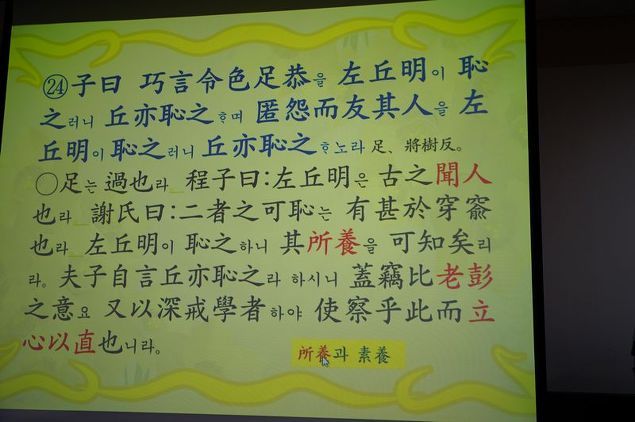 ㉔子曰 巧言令色足恭을 左丘明이 恥
之러니 丘亦恥之ᄒᆞ며 匿怨而友其人을 左
丘明이 恥之러니 丘亦恥之ᄒᆞ노라 足、將樹反。
○足는 過也라 程子曰:左丘明은 古之聞人
也라 謝氏曰:二者之可恥는 有甚於穿窬
也라 左丘明이 恥之하니 其所養을 可知矣리
라。夫子自言丘亦恥之라 하시니 蓋竊比老彭
之意요 又以深戒學者하야 使察乎此而立
心以直也니라。
所養과 素養